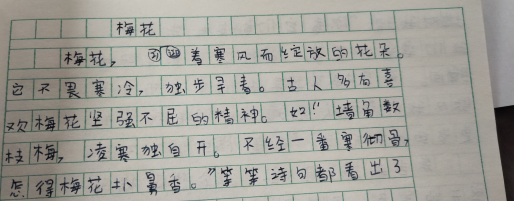 梅花
梅花，迎着寒风而绽放的花朵。
它不畏寒冷，独步早春。古人多有喜
欢梅花坚强不屈的精神。如“墙角数
枝梅，凌寒独自开。不经一番寒彻骨，
怎得梅花扑鼻香。”等等诗句都看出了